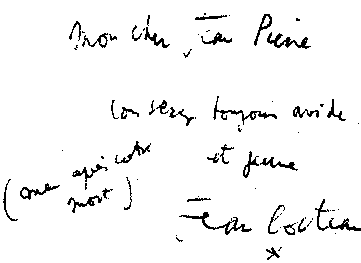 Mon cher Jean Pierre
vous serez toujours avide
et jeune
(même après votre
mort)
Jean Cocteau